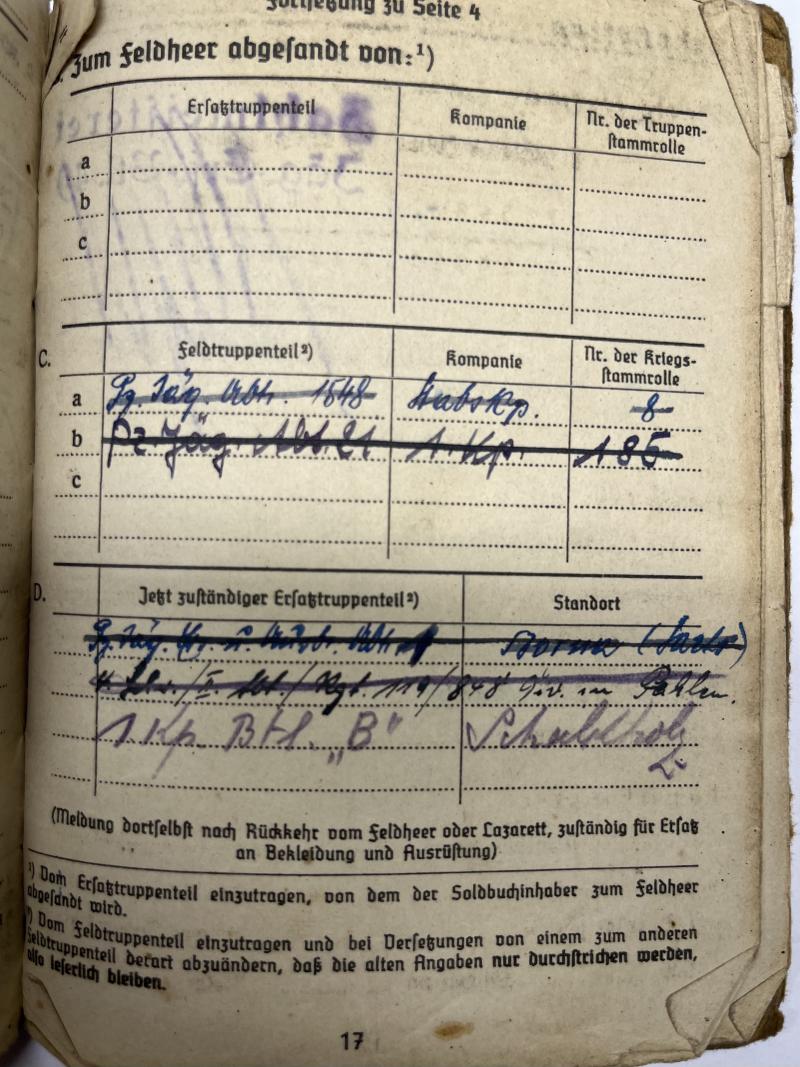 Fortsetzung zu Seite 4
Zum Feldheer abgesandt von:¹)
Ersatztruppenteil Kompanie Nr. der Truppen-
stammrolle
a
b
c
C. Feldtruppenteil²) Kompanie Nr. der Kriegs-
stammrolle
a Pz. Jäg. Abt. 1548 Stabskp. 8
b Pz. Jäg. Abt. 21 1. Kp. 185
c
D. Jetzt zuständiger Ersatztruppenteil²) Standort
Pz. Jäg. Ers. u. Ausb. Abt. Borna
Abt./Rgt. 119/848 Div. in
1 Kp. Btl. „B"
(Meldung dortselbst nach Rückkehr vom Feldheer oder Lazarett, zuständig für Ersatz
an Bekleidung und Ausrüstung)
¹) Vom Ersatztruppenteil einzutragen, von dem der Soldbuchinhaber zum Feldheer
abgesandt wird.
²) Vom Feldtruppenteil einzutragen und bei Versetzungen von einem zum anderen
Feldtruppenteil derart abzuändern, daß die alten Angaben nur durchstrichen werden,
also leserlich bleiben.
17